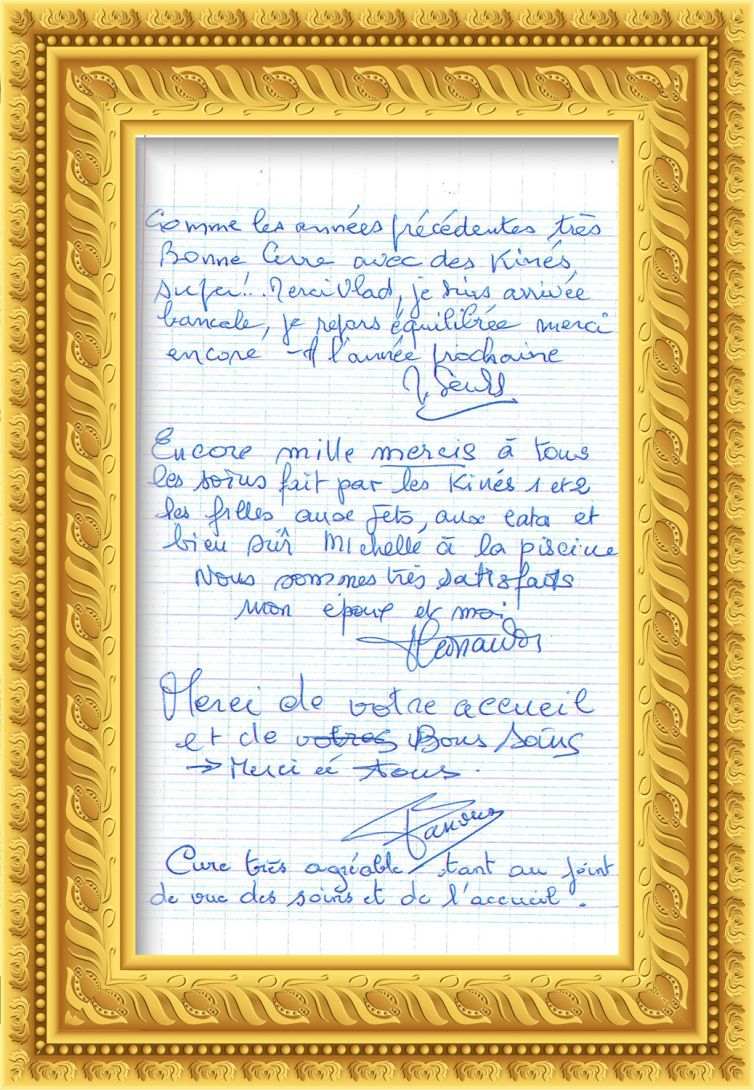 Comme les années précédentes très
Bonne Cure avec des Kinés
super!.. Merci Vlad, je suis arrivée
bancale, je repars équilibrée merci
encore - A l'année prochaine
Encore mille mercis à tous
les soins fait par les Kinés 1 et 2
les filles aux jets, aux cata et
bien sûr Michelle à la piscine
Nous sommes très satisfaits
mon époux et moi
Merci de votre accueil
et de votres Bons Soins
→ Merci à tous.
Cure très agréable, tant au point
de vue des soins et de l'accueil.